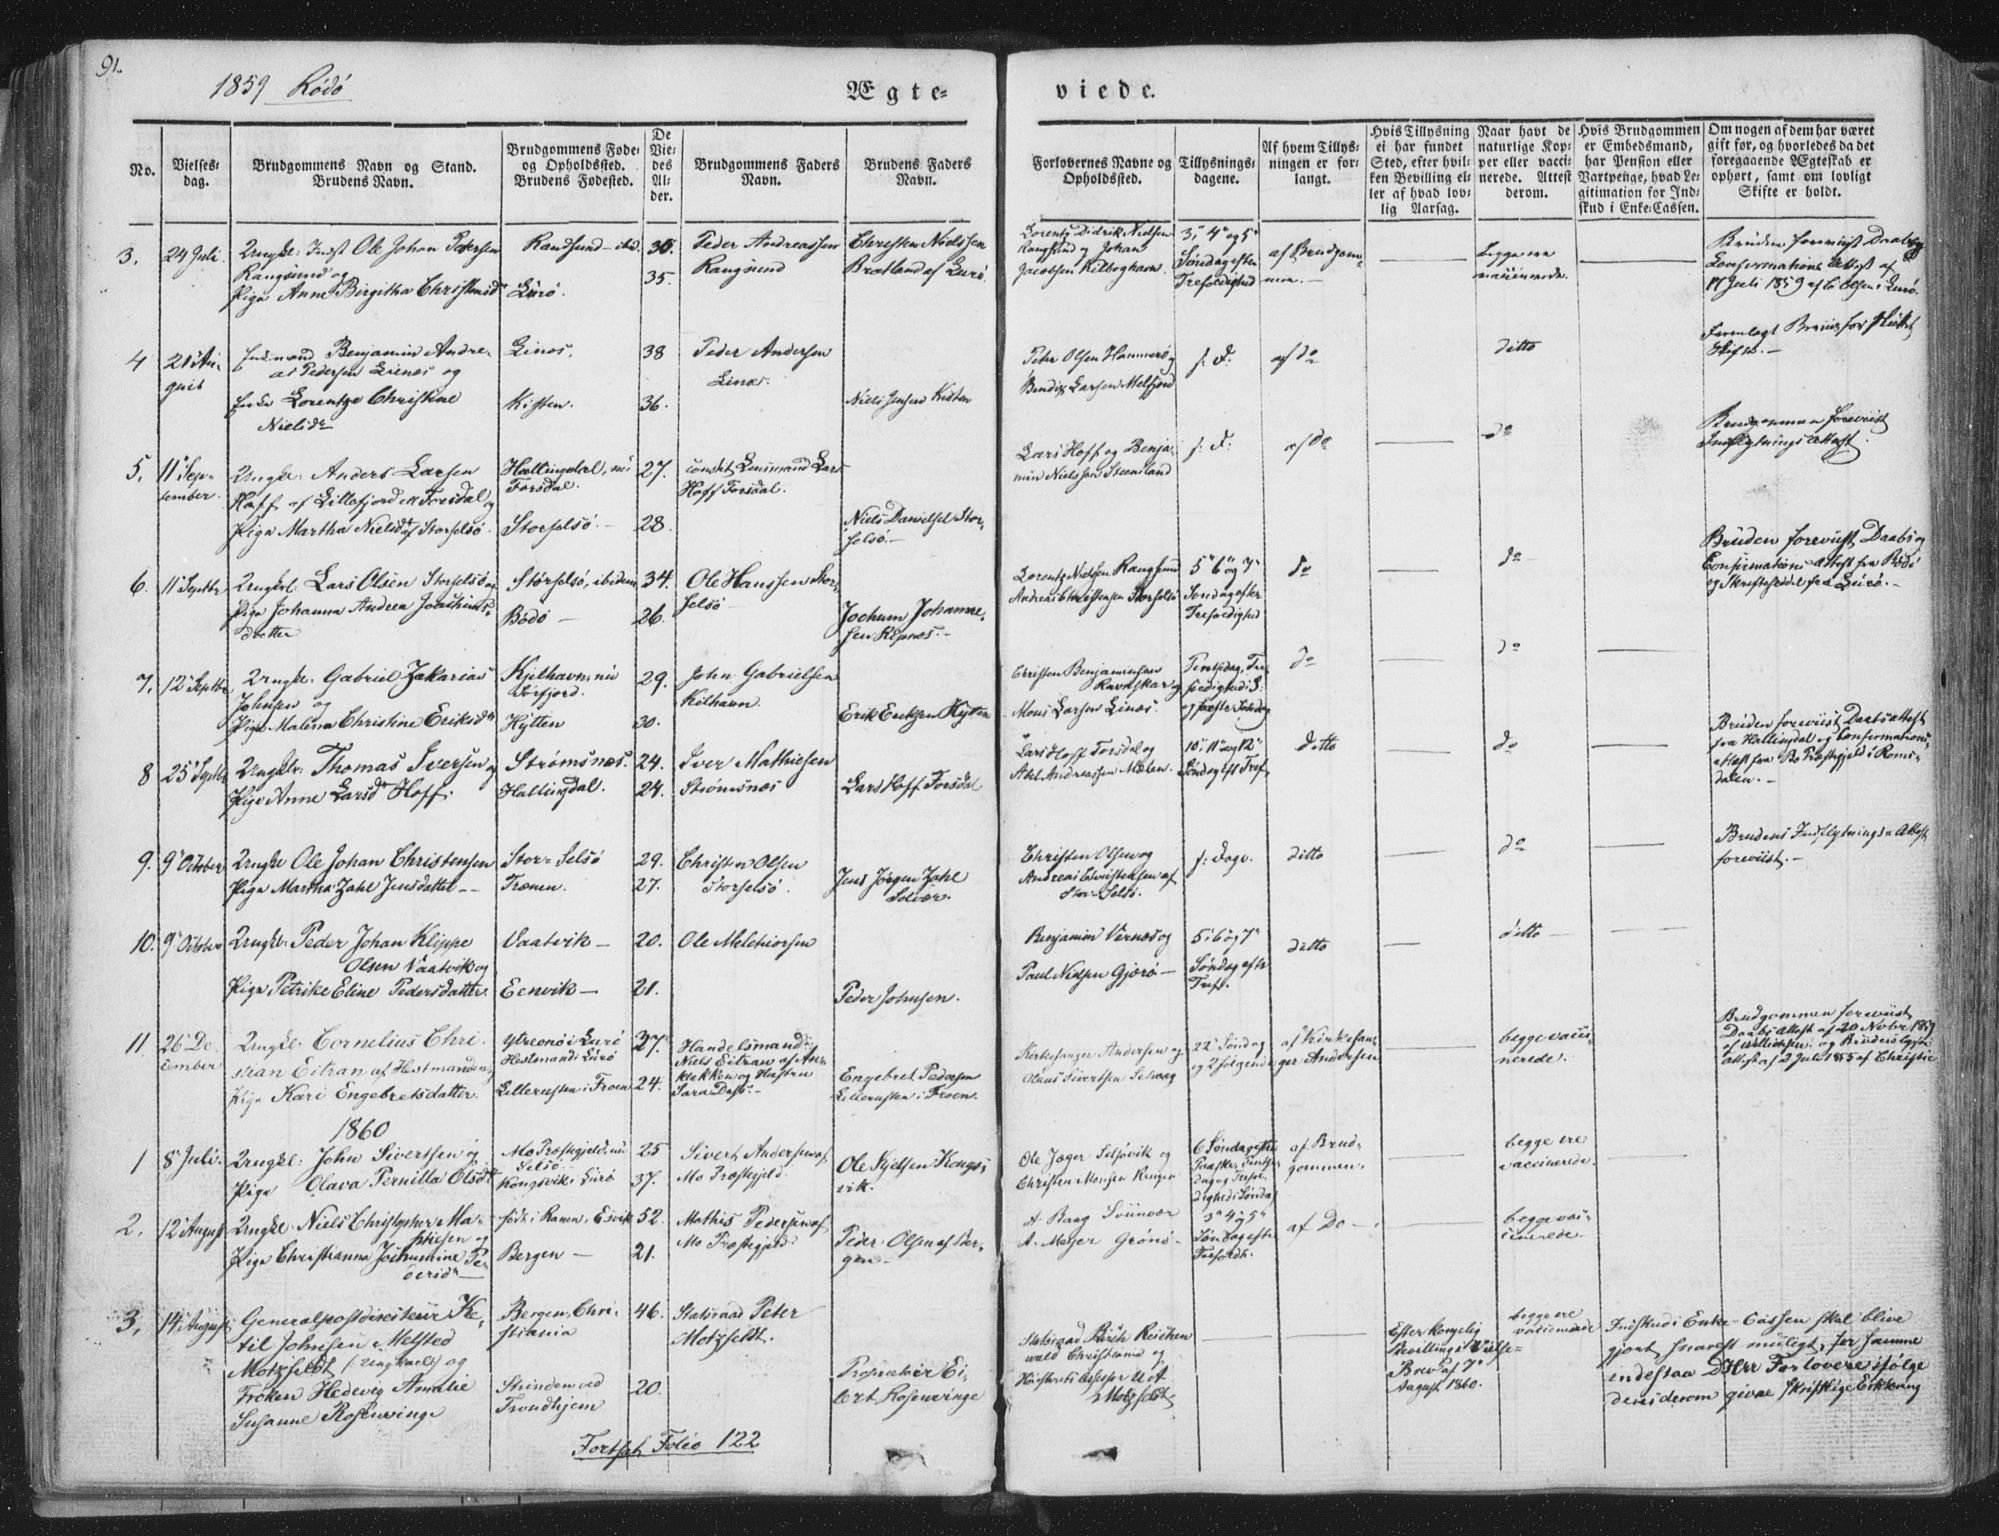 91.
1859 Rödö
Ægte-
viede.
No.
Vielses-
dag.
Brudgommens Navn og Stand.
Brudens Navn.
Brudgommens Føde-
og Opholdssted.
Brudens Fødested.
De
Vie-
des
Al-
der.
Brudgommens Faders
Navn.
Brudens Faders
Navn.
Forlovernes Navne og
Opholdssted.
Tillysnings-
dagene.
Af hvem Tillys-
ningen er for-
langt.
Hvis Tillysning
ei har fundet
Sted, efter hvil-
ken Bevilling el-
ler af hvad lov-
lig Aarsag.
Naar havt de
naturlige Kop-
per eller vacci-
nerede. Attest
derom.
Hvis Brudgommen
er Embedsmand,
har Pension eller
Vartpenge, hvad Le-
gitimation for Ind-
skud i Enke-Cassen.
Om nogen af dem har været
gift før, og hvorledes da det
foregaaende Ægteskab er
ophørt, samt om lovligt
Skifte er holdt.
3. 24 Juli
Ungk: Indst Ole Johan Pedersen
Rangsund og
Pige Anne Birgitha Christensd
Randsund - ibid.
Lurö.
35.
Peder Andreassen
Rangsund
Christen Nielsen
Bratland af Lurö
Lorentz Didrik Nielsen
Rangsund og Johan
Jacobsen Kilboghavn.
3, 4 og 5
Søndag efter
Trefoldighed
af Brudgom-
men.
begge ere
vaccinerede.
Bruden foreviist Daabs og
Confirmations Attest af
17 Juli 1859 af Olsen i Lurö.
4 21 Au-
gust
Enkemand Benjamin Andre-
as Pedersen Lienes og
Enke Lorentze Christine
Nielsdr
Linæs.
Kisten.
38
36.
Peder Andersen
Linæs.
Niels Jensen Kisten
Peter Olsen Hammerö og
Bendix Larsen Melfjord
s: D:
af do
ditto
Forelagt Beviis for
Skifte.
5. 11 Sep-
tember
Ungk: Anders Larsen
Hoff af Lillefjord Forsdal og
Pige Martha Nielsdr af Storselsö
Hallingdal, nu
Forsdal.
Storselsö.
27.
28.
const. Lensmand Lars
Hoff Forsdal.
Niels Danielsel Stor-
selsö.
Lars Hoff og Benja-
min Nielsen Steenland
s: D:
af do
do
Brudgommen foreviist
Indflytnings Attest.
6. 11 Septbr
Ungk. Lars Olsen Storselsö og
Pige Johanna Andrea Joachims-
datter
Storselsö, ibidem
Bodö
34.
26.
Ole Hanssen Stor-
selsö
Jochum Johanne-
sen Ripnæs.
Lorentz Nielsen Rangsund
Andreas Christensen Storselsö
5 6 og 7
Søndag efter
Trefoldighed
do
do
Bruden foreviist Daabs og
Confirmations Attest fra Bodö
og Skriftseddel fra Lurö.
7. 12 Septbr
Ungk: Gabriel Zakarias
Johnsen og
Pige Malena Christine Eriksdr
Kjelhavn, nu
Hytten
29.
30.
John Gabrielsen
Kilhavn
Erik Eriksen Hytten
Christen Benjaminsen
Ravnskar og
Mons Larsen Linæs.
Pintsdag, Tre-
foldighed S:
og første Søndag
do
do
8 25 Septbr
Ungk: Thomas Iversen og
Pige Anne Larsdr Hoff.
Strømsnæs.
Hallingdal.
24.
24.
Iver Mathiesen
Strømsnæs
Lars Hoff Forsdal
Lars Hoff Forsdal og
Abel Andreassen
10, 11 og 12
Søndag eft Tref
ditto
do
Bruden foreviist Daabsattest
fra Hallingdal og Confirmations-
attest fra Bö Præstegjeld i Roms-
dalen.
9. 9 October
Ungk Ole Johan Christensen
Pige Martha Zahl Jensdatter
Stor-Selsö
Trænen.
29.
27.
Christen Olsen
Storselsö.
Jens Jörgen Zahl
Solvær.
Christen Olsen og
Andreas Christensen af
Stor-Selsö.
s: Dage.
ditto
do
Brudens Indflytnings-Attest
foreviist.
10. 9 October
Ungk: Peder Johan Klippe
Olsen Vaatvik og
Pige Petrike Eline Pedersdatter
Vaatvik
Eenvik
20.
21.
Ole Melchiorsen
Peder Johnsen.
Benjamin Vernæs og
Paul Nielsen Gjærö
5, 6 og 7
Søndag eft
Tref.
ditto
ditto
11. 26 De-
cember
Ungk: Cornelius Chri-
stian Eitran af Hestmanden og
Pige Kari Engebretsdatter.
Ytreonö i Lurö
Hestmand i Lurö
Lillerusten i Froen
27.
24.
Handelsmand
Niels Eitran af An-
klakken og Hustru
Sara Dass.
Engebret Pedersen
Lillerusten i Froen.
Kirkesanger Andersen og
Olaus Sivertsen Selvaag
22 Søndag
og 2 følgende
af Kirkesan-
ger Andersen
begge vacci-
nerede.
Brudgommen foreviist
Daabs Attest af 20 Novbr 1859
1860
1 8 Juli.
Ungk: John Sivertsen og
Pige Olava Pernilla Olsdr
Mo Præstegjeld, nu
Selsö
Kongsvik i Lurö
25
37.
Sivert Andersen af
Mo Præstegjeld.
Ole Kjelsen Kongs-
vik.
Ole Jæger Selsövik og
Christen Monsen Ringen
6 Søndag efter
Paaske, Pintse-
dag og Trefol-
dighed: Søndag
af Brud-
gommen.
begge ere
vaccinerede.
2. 12 August
Ungk: Niels Christopher Ma-
thiesen og
Pige Christianna Jochumine Pe-
dersdr
født i Ranen, Esvik
Bergen
52.
21.
Mathis Pedersen af
Mo Præstegjeld
Peder Olsen af Ber-
gen
A Baag Sviinvær
A. Meyer Grönö
3 4 og 5
Søndag efte
Trefoldh.
af Do
begge vac-
cinerede.
3. 14 August
Generalpostdirecteur Ke-
til Johnsen Melsted
Motzfeldt (Ungkarl) og
Frøken Hedevig Amalie
Susanne Rosenvinge
Bergen, Chri-
stiania
Strinden ved
Trondhjem
46.
20.
Statsraad Peter
Motzfeldt.
Proprietær Ei-
lert Rosenvinge
Statsraad Birch Reichen
wald Christiania og
Høiesterets Assessor U A
Motzfeldt
Efter kongelig
Bevillings Vielse-
Brev af 7
August 1860.
begge ere
vaccinerede
Indskud i Enke-Cassen skal blive
gjort snarest muligt, for hamme
indestaa DHrr Forlovere ifølge
deres derom givne skriftlige Erklæring
Forts: Folio 122